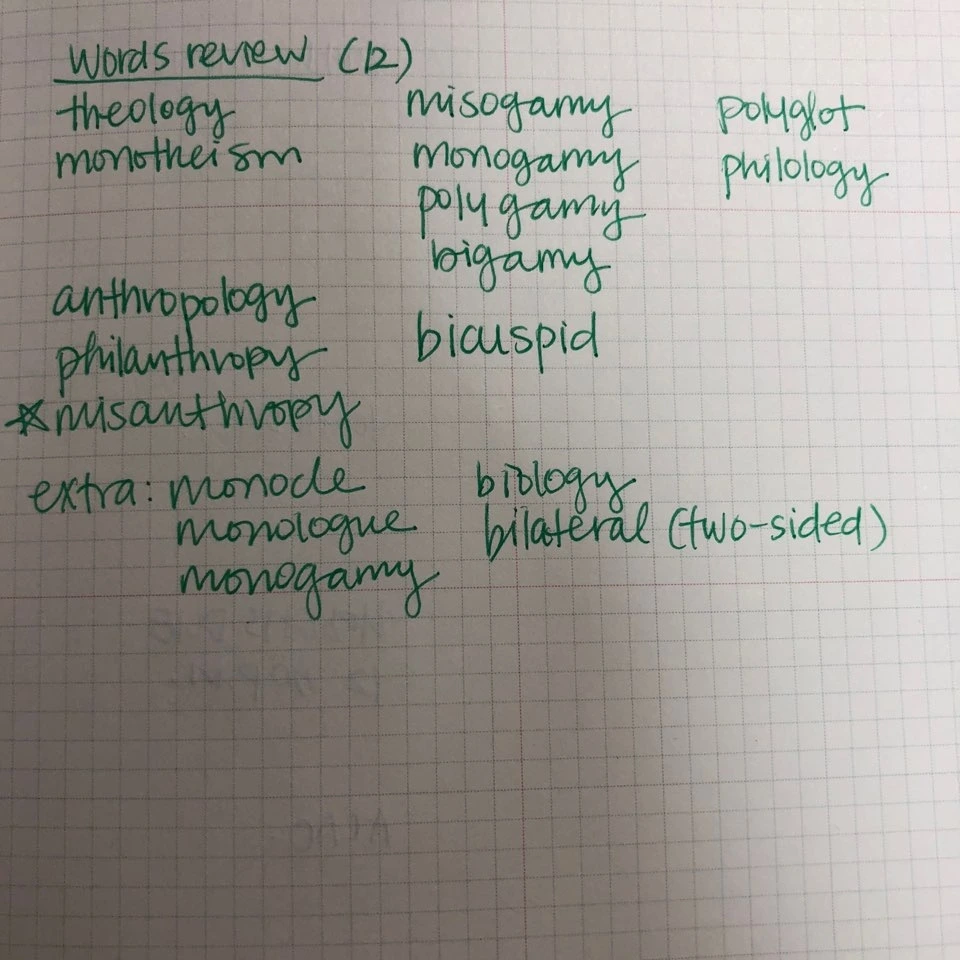 Words review (12)
theology
monotheism
anthropology
philanthropy
☆misanthropy
misogamy
monogamy
polygamy
bigamy
bicuspid
polyglot
philology
extra: monocle
monologue
monogamy
biology
bilateral (two-sided)